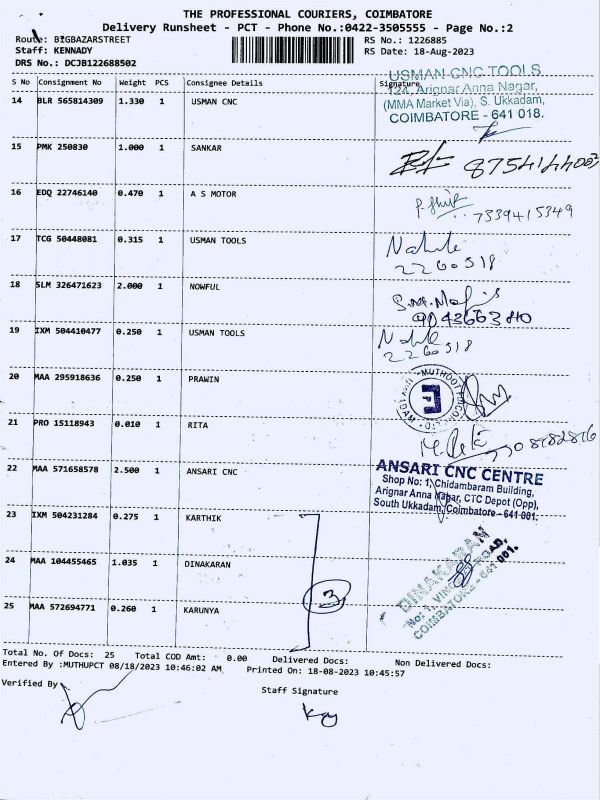 THE PROFESSIONAL COURIERS, COIMBATORE
Delivery Runsheet - PCT - Phone No.:0422-3505555 - Page No.:2
Route: BIGBAZARSTREET
RS No.: 1226885
Staff: KENNADY
RS Date: 18-Aug-2023
DRS No.: DCJB122688502
S No Consignment No Weight PCS Consignee Details Signature
14 BLR 565814309 1.330 1 USMAN CNC
USMAN CNC TOOLS
124, Arignar Anna Nagar,
(MMA Market Via), S. Ukkadam,
COIMBATORE - 641 018.
15 PMK 250830 1.000 1 SANKAR
16 EDQ 22746140 0.470 1 A S MOTOR
7339415349
17 TCG 50448081 0.315 1 USMAN TOOLS
2260518
18 SLM 326471623 2.000 1 NOWFUL
19 IXM 504410477 0.250 1 USMAN TOOLS
2260518
20 MAA 295918636 0.250 1 PRAWIN
MUTHOOT
21 PRO 15118943 0.010 1 RITA
22 MAA 571658578 2.500 1 ANSARI CNC
ANSARI CNC CENTRE
Shop No: 1, Chidambaram Building,
Arignar Anna Nagar, CTC Depot (Opp),
South Ukkadam, Coimbatore - 641 001.
23 IXM 504231284 0.275 1 KARTHIK
24 MAA 104455465 1.035 1 DINAKARAN
DINAKARAN
COIMBATORE - 641 001.
3
25 MAA 572694771 0.260 1 KARUNYA
Total No. Of Docs: 25 Total COD Amt: 0.00 Delivered Docs: Non Delivered Docs:
Entered By :MUTHUPCT 08/18/2023 10:46:02 AM Printed On: 18-08-2023 10:45:57
Verified By
Staff Signature